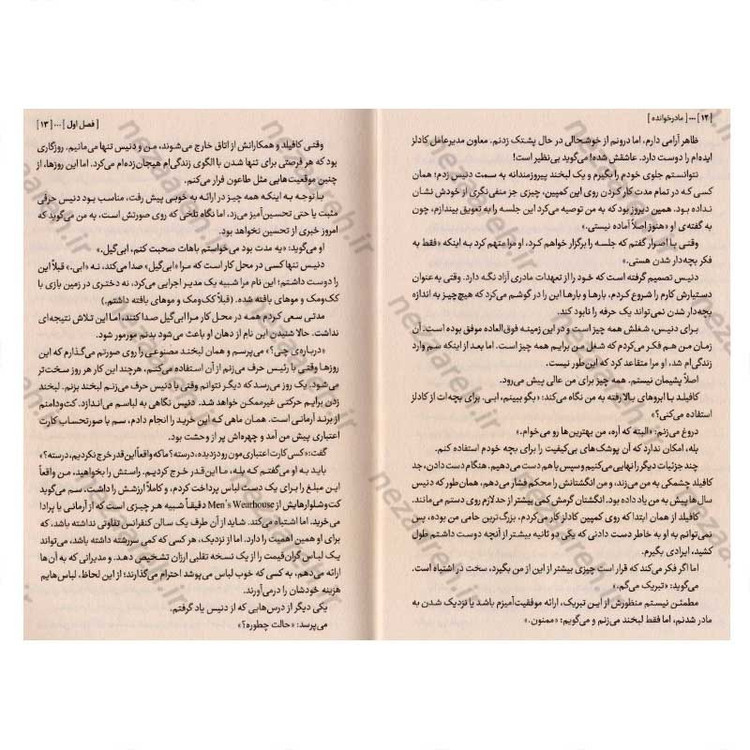 [ ۱۲ ] ... [ مادرخوانده ]
ظاهر آرامی دارم، اما درونم از خوشحالی در حال پشتک زدنم. معاون مدیرعامل کادلز
ایده‌ام را دوست دارد. عاشقش شده! می‌گوید بی‌نظیر است!
نتوانستم جلوی خودم را بگیرم و یک لبخند پیروزمندانه به سمت دنیس زدم؛ همان
کسی کـه در تمام مدت کار کردن روی این کمپین، چیزی جز منفی‌نگری از خودش نشان
نداده بود. همین دیروز بود که به من توصیه می‌کرد این جلسه را به تعویق بیندازم، چون
به گفته‌ی او «هنوز اصلاً آماده نیستی.»
وقتی با اصرار گفتم که جلسه را برگزار خواهم کرد، او مرا متهم کرد به اینکه «فقط به
فکر بچه‌دار شدن هستی.»
دنیس تصمیم گرفته است که خـود را از تعهدات مادری آزاد نگـه دارد. وقتی به‌عنوان
دستیارش کارم را شروع کردم، بارهـا و بارها این را در گوشم می‌کرد که هیچ‌چیـز به اندازه
بچه‌دار شدن نمی‌تواند یک حرفه را نابود کند.
برای دنیس، شغلش همه چیز است و در این زمینـه فوق‌العاده موفق بوده است. آن
زمان مـن هـم فکر می‌کردم که شغل من برایم همه چیز است. اما بعد از اینکه سم وارد
زندگی‌ام شد، او مرا متقاعد کرد که این‌طور نیست.
اصلاً پشیمان نیستم. همه چیز برای من عالی پیش می‌رود.
کافیلـد با ابروهای بالا رفته به من نگاه می‌کند: «بگو ببینم، ابی. برای بچه‌ات از کادلز
استفاده می‌کنی؟»
دروغ می‌زنم: «البته که آره، من بهترین‌ها رو می‌خوام.»
بله، امکان ندارد که آن پوشک‌های بی‌کیفیت را برای بچه خودم استفاده کنم.
چند جزئیات دیگر را نهایی می‌کنیم و سپس با هم دست می‌دهیم. هنگام دست دادن، جد
کافیلد چشمکی به من می‌زند، و من انگشتانش را محکم فشار می‌دهم، همان‌طور که دنیس
سال‌ها پیش به من یاد داده بود. انگشتان گرمش کمی بیشتر از حد لازم روی دستم می‌مانند.
کافیلد از همان ابتدا که روی کمپین کادلز کار می‌کردم، بزرگ‌ترین حامی من بوده، پس
نمی‌توانم به او به خاطر دست دادنی که یکی دو ثانیه بیشتر از آنچه دوست داشتم طول
کشید، ایرادی بگیرم.
اما اگر فکر می‌کند که قرار است چیزی بیشتر از این از من بگیرد، سخت در اشتباه است.
می‌گوید: «تبریک می‌گم.»
مطمئـن نیستم منظورش از ایـن تبریـک، ارائه موفقیت‌آمیزم باشد یا نزدیک شدن به
مادر شدنم، اما فقط لبخند می‌زنم و می‌گویم: «ممنون.»
[ فصل اول ] ... [ ۱۳ ]
وقتی کافیلد و همکارانش از اتاق خارج می‌شوند، من و دنیس تنها می‌مانیم. روزگاری
بود که هر فرصتی برای تنها شدن با الگوی زندگی‌ام هیجان‌زده‌ام می‌کرد. اما این روزها، از
چنین موقعیت‌هایی مثل طاعون فرار می‌کنم.
بـا توجـه به اینکـه همه چیـز در ارائـه به خوبی پیش رفت، مناسب بـود دنیس حرفی
مثبت یا حتی تحسین‌آمیز می‌زد، اما نگاه تلخی که روی صورتش است، به من می‌گوید که
امروز خبری از تحسین نخواهد بود.
او می‌گوید: «یه مدت بود می‌خواستم باهات صحبت کنم، ابی‌گیل.»
دنیـس تنها کسی در محل کار است که مـرا «ابی‌گیل» صدا می‌کند، نـه «ابی.» قبلاً این
را دوست داشتم؛ این نام مرا شبـه یک مدیـر اجرایی می‌کرد، نه دختری در زمین بازی با
کک‌ومک و موهای بافته شده. (قبلاً کک‌ومک و موهای بافته داشتم.)
مدتـی سعی کردم همه در محـل کار مـرا ابی‌گیل صدا کنند، امـا این تـلاش نتیجه‌ای
نداشت. حالا شنیدن این نام از دهان او باعث می‌شود بدنم مورمور شود.
«درباره‌ی چی؟» می‌پرسم و همان لبخند مصنوعی را روی صورتم می‌گذارم که این
روزها وقتی با رئیس حرف می‌زنم از آن استفاده می‌کنم، هرچند این کار هر روز سخت‌تر
می‌شود. یک روز می‌رسد که دیگر نتوانم وقتی با دنیس حرف می‌زنم لبخند بزنم. لبخند
زدن برایم حرکتی غیرممکن خواهد شد. دنیس نگاهی به لباسم می‌اندازد. کت‌ودامنم
از برند آرمانی است. همان ماهی کـه این خرید را انجام دادم، سم با صورتحساب کارت
اعتباری پیش من آمد و چهره‌اش پر از وحشت بود.
گفت: «کسی کارت اعتباری‌مون رو دزدیده، درسته؟ ما که واقعاً این‌قدر خرج نکردیم، درسته؟»
بایـد به او می‌گفتـم کـه بلـه، مـا این‌قـدر خـرج کردیـم. راستـش را بخواهید، مـن واقعاً
ایـن مبلـغ را بـرای یـک دسـت لباس پرداخت کردم، و کامـلاً ارزشـش را داشـت. سـم می‌گوید
کت‌وشلوارهایش از Men's Wearhouse دقیقـاً شبیـه هـر چیزی است که از آرمانی یا پرادا
می‌خرید. اما اشتباه می‌کند. شاید از آن طرف یک سالن کنفرانس تفاوتی نداشته باشد، که
برای او همین اهمیت را دارد. اما از نزدیک، هر کسی که کمی سررشته داشته باشد، می‌تواند
یـک لبـاس گران‌قیمت را از یک نسخه تقلبی ارزان تشخیص دهـد. و مدیرانی که به آن‌ها
ارائه می‌دهم، به کسی که خوب لباس می‌پوشد احترام می‌گذارند؛ از این لحاظ، لباس‌هایم
هزینه خودشان را درمی‌آورند.
یکی دیگر از درس‌هایی که از دنیس یاد گرفتم.
می‌پرسد: «حالت چطوره؟»
nezareh.ir